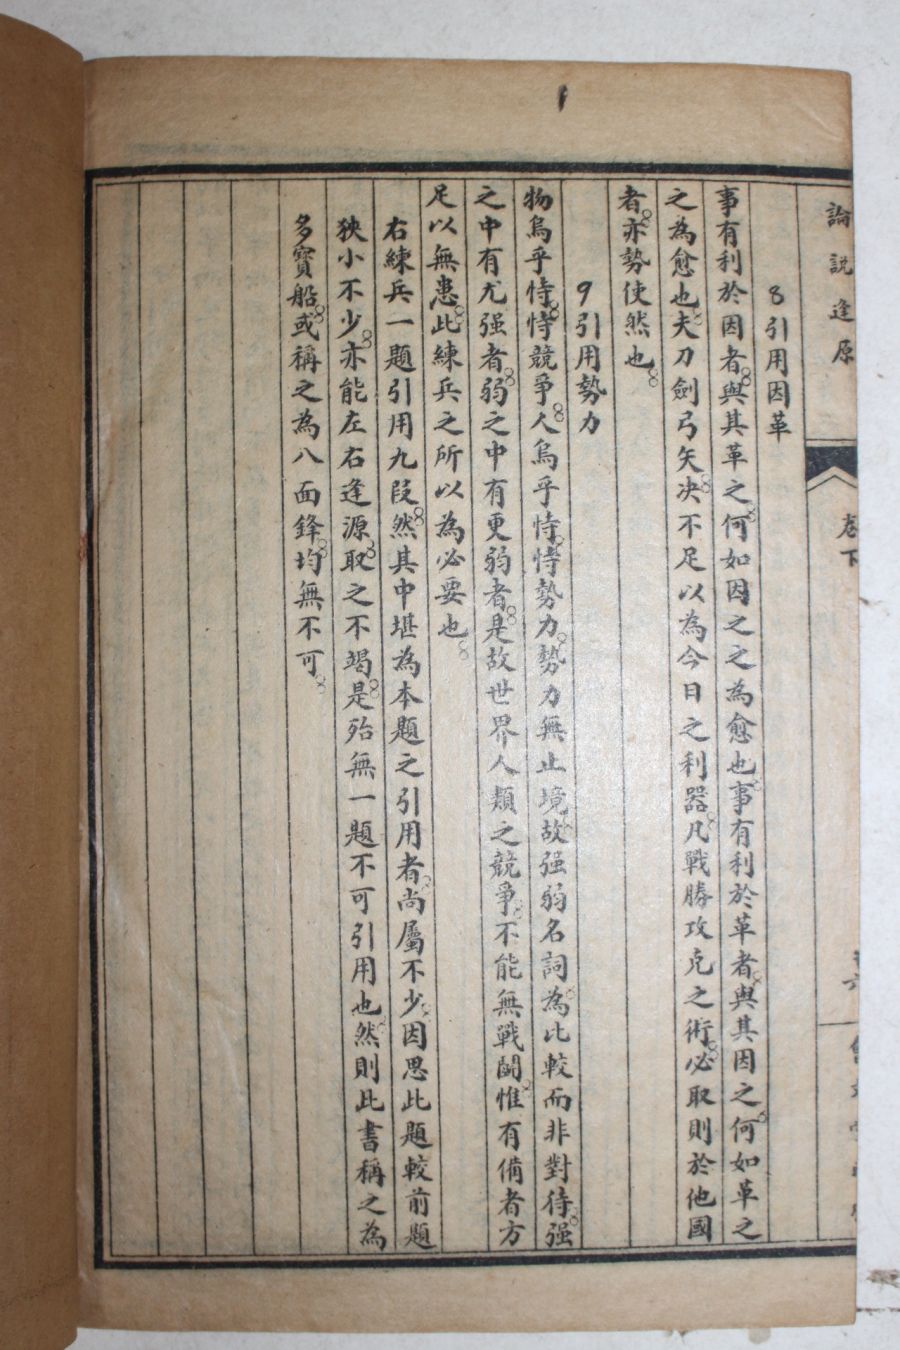 論說逢原
卷下
8引用因革
事有利於因者與其革之何如因之之為愈也事有利於革者與其因之何如革之
之為愈也夫刀劍弓矢决不足以為今日之利器凡戰勝攻克之術必取則於他國
者亦勢使然也
9引用勢力
物烏乎恃恃競爭人烏乎恃恃勢力勢力無止境故强弱名詞為比較而非對待强
之中有尤强者弱之中有更弱者是故世界人類之競爭不能無戰鬪惟有備者方
足以無患此練兵之所以為必要也
右練兵一題引用九段然其中堪為本題之引用者尚屬不少因思此題較前題
狹小不少亦能左右逢源取之不竭是殆無一題不可引用也然則此書稱之為
多寳船或稱之為八面鋒均無不可